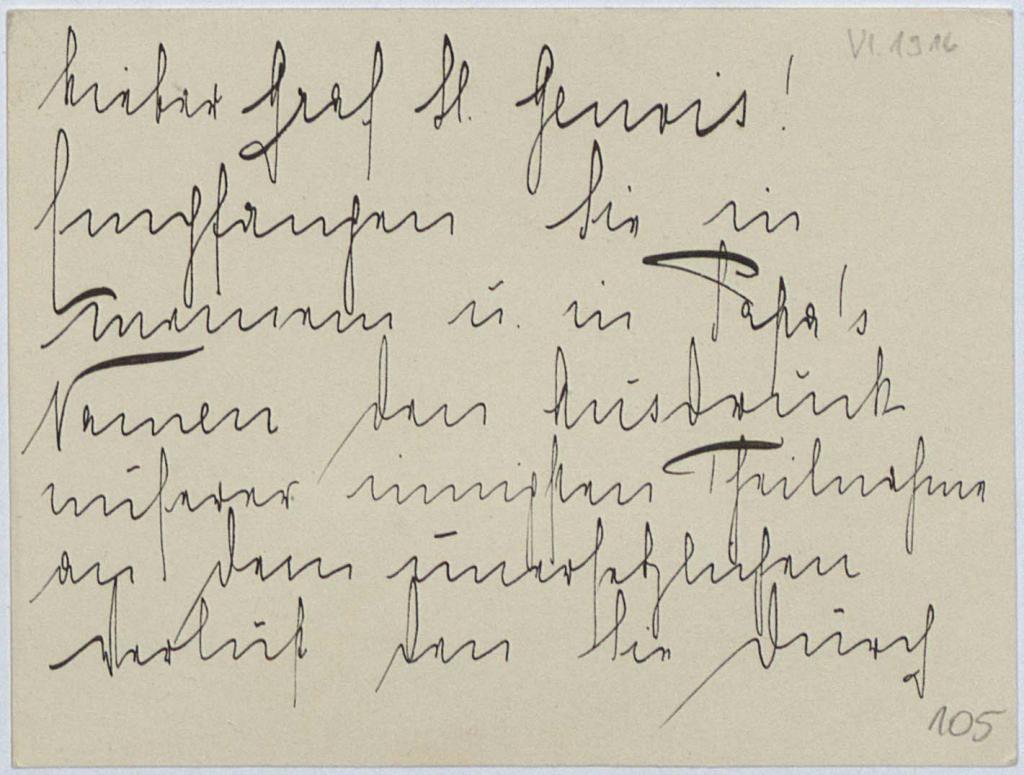 VI. 1916
Lieber Graf St. Genois!
Empfangen Sie in
meinem u. in Papa's
Namen den Ausdruck
unserer innigsten Theilnahme
an dem unersetzlichen
Verlust den Sie durch
105